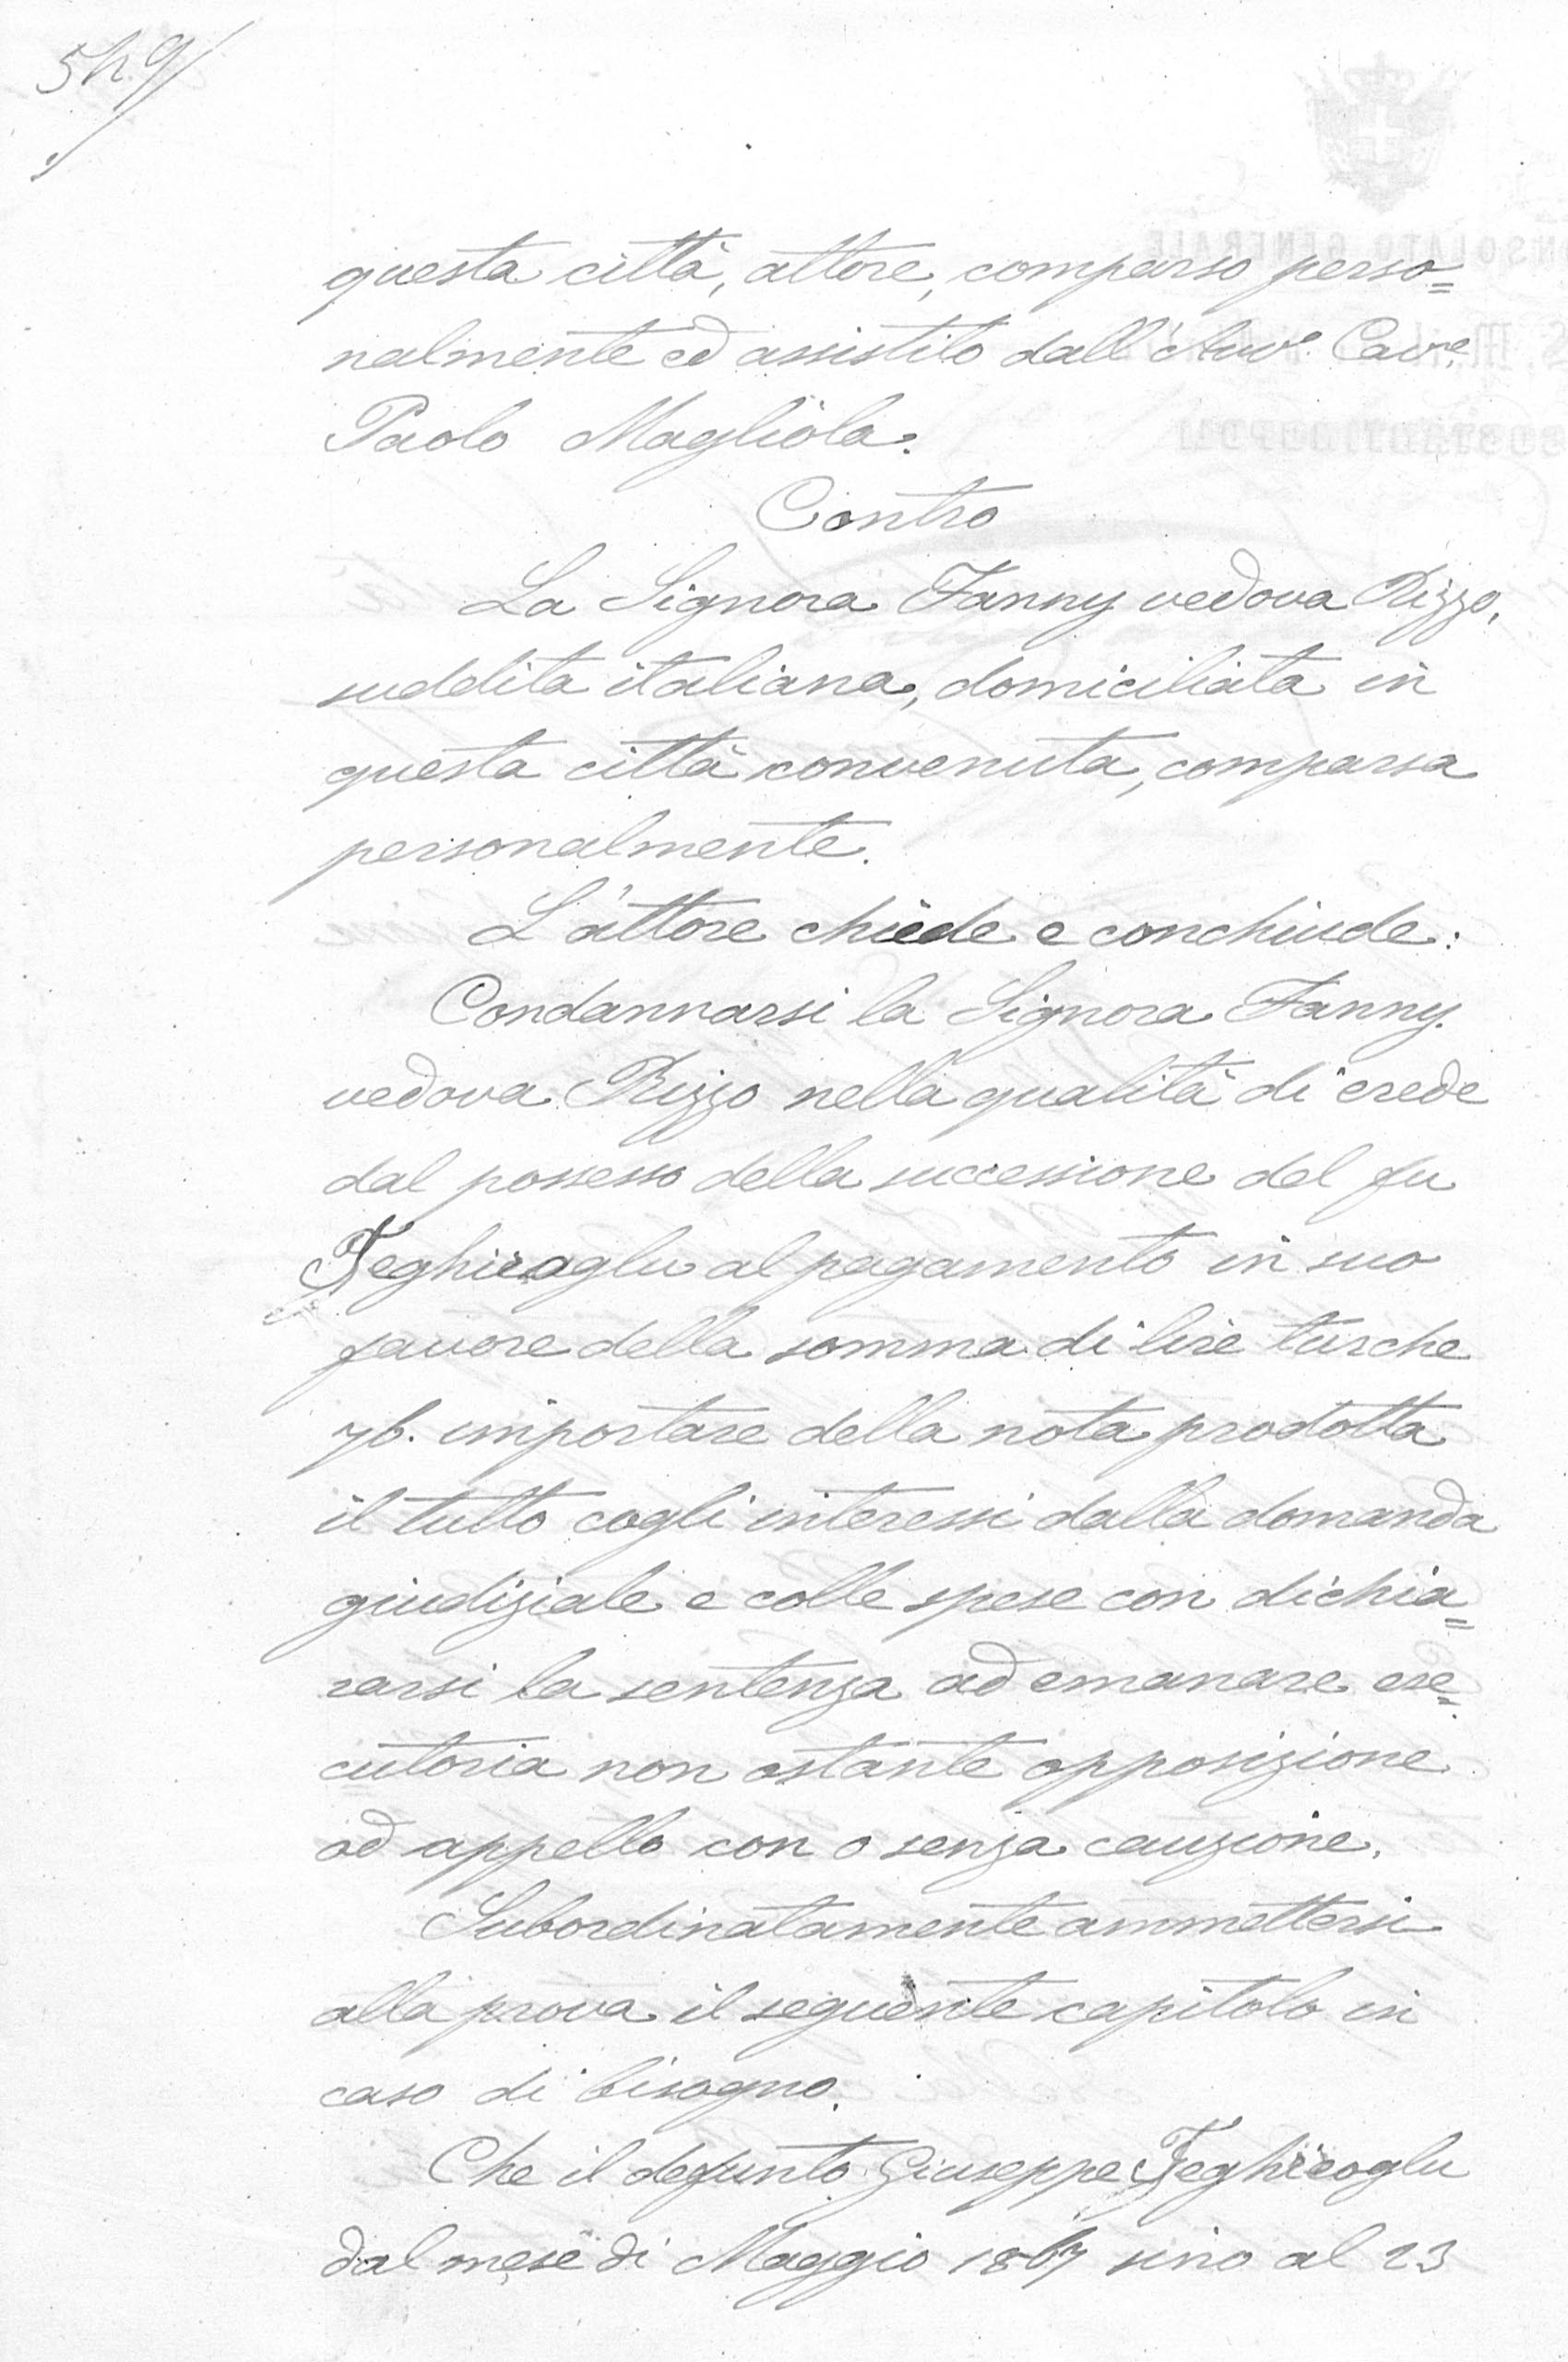 questa città, attore, comparso perso=
nalmente ed assistito dall'Avv.o Cav.re
Paolo Magliola.
Contro
La Signora Fanny vedova Rizzo,
suddita italiana, domiciliata in
questa città convenuta, comparsa
personalmente.
L'attore chiede e conchiude:
Condannarsi la Signora Fanny
vedova Rizzo nella qualità di erede
dal possesso della successione del fu
Teghiroglu al pagamento in suo
favore della somma di lire turche
76. importare della nota prodotta
il tutto cogli interessi dalla domanda
giudiziale e colle spese con dichia=
rarsi la sentenza ad emanare ese=
cutoria non ostante opposizione
od appello con o senza cauzione.
Subordinatamente ammettersi
alla prova il seguente capitolo in
caso di bisogno.
Che il defunto Giuseppe Teghiroglu
dal mese di Maggio 1867 sino al 23